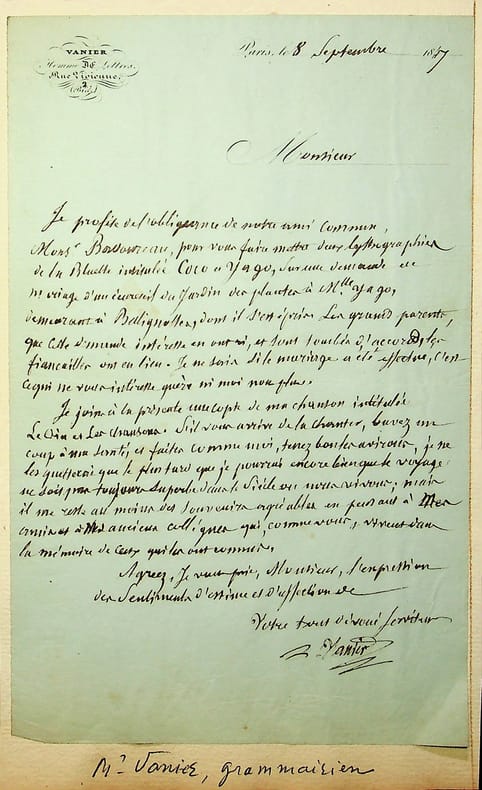 VANIER
Homme DE Lettres.
Rue Vivienne,
2
Paris, le 8 Septembre 1857
Monsieur
Je profite de l'obligeance de notre ami commun,
Monsr pour vous faire mettre deux lythographies
de la Bluette intitulée Coco et Yago, sur une demande de
mariage d'un écureuil du Jardin des plantes à Mlle Yago,
demeurant à Batignolles, dont il s'est épris. Les grands parents,
que cette demande intéresse en ont ri, et sont tombés d'accord, les
fiancailles ont eu lieu. Je ne sais si le mariage a été effectué, c'est
ce qui ne vous intéresse guère ni moi non plus.
Je joins à la présente une copie de ma chanson intitulée
Le Vin et Les Chansons. S'il vous arrive de la chanter, buvez un
coup à ma santé, et faites comme moi, tenez bon les avirons, je ne
les quitterai que le plus tard que je pourrai encore bien que le voyage
ne soit pas toujours superbe dans le Siècle où nous vivons; mais
il me reste au moins des souvenirs agréables en pensant à Mes
amis et à Mes anciens collègues qui, comme vous, vivent dans
la mémoire de ceux qui les ont connus.
Agréez, Je vous prie, Monsieur, l'expression
des Sentiments d'estime et d'affection de
Votre tout dévoué serviteur
Vanier
Mr Vanier, grammairien